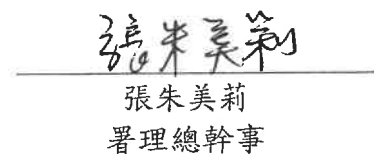 張朱美莉
張朱美莉
署理總幹事